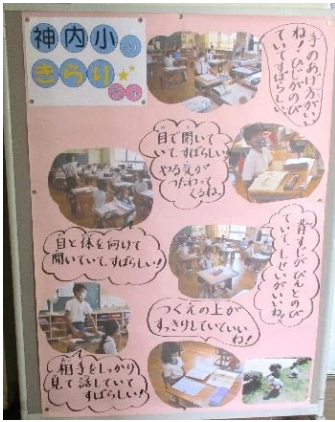 神内小
きらり
手のあげ方がいい
ね！ひじがのび
ていてすばらしい。
目で聞いて
いて、すばらしい！
やる気が
つたわって
くるね。
目と体を向けて
聞いていて、すばらしい！
背すじがぴんとのび
ていて、しせいがいいね。
つくえの上が
すっきりしていていい
ね！
相手をしっかり
見て話していて
すばらしい！